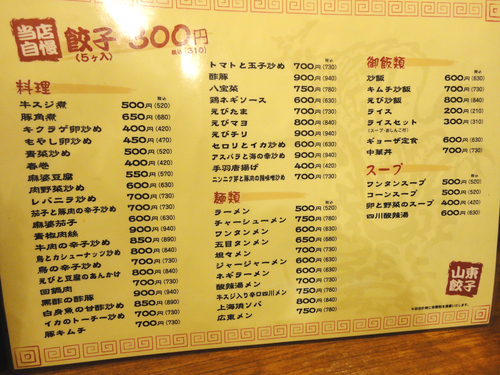 当店自慢 餃子 300円
(5ヶ入) 税込(310)
料理
牛スジ煮 500円(520)
豚角煮 650円(680)
キクラゲ卵炒め 400円(420)
もやし卵炒め 450円(475)
青菜炒め 500円(520)
春巻 400円(420)
麻婆豆腐 550円(570)
肉野菜炒め 600円(630)
レバニラ炒め 700円(730)
茄子と豚肉の辛子炒め 700円(730)
麻婆茄子 600円(630)
青椒肉絲 900円(940)
牛肉の辛子炒め 850円(890)
鳥とカシューナッツ炒め 800円(840)
鳥の辛子炒め 700円(730)
えびと豆腐のあんかけ 800円(840)
回鍋肉 700円(730)
黒酢の酢豚 900円(940)
白身魚の甘酢炒め 850円(890)
イカのトーチー炒め 700円(730)
豚キムチ 700円(730)
トマトと玉子炒め 700円(730)
酢豚 900円(940)
八宝菜 750円(780)
鶏ネギソース 600円(630)
えびたま 700円(730)
えびマヨ 800円(840)
えびチリ 900円(940)
セロリとイカ炒め 600円(630)
アスパラと海の幸炒め 900円(940)
手羽唐揚げ 400円(420)
ニンニク芽と豚肉の辣味噌炒め 700円(730)
麺類
ラーメン 500円(520)
チャーシューメン 750円(780)
ワンタンメン 600円(630)
五目タンメン 650円(680)
坦々メン 700円(730)
ジャージャーメン 600円(630)
ネギラーメン 600円(630)
酸辣湯メン 700円(730)
牛スジ入り辛口四川メン 800円(840)
上海焼ソバ 800円(840)
広東メン 700円(730)
御飯類
炒飯 600円(630)
キムチ炒飯 700円(730)
えび炒飯 800円(840)
ライス 200円(210)
ライスセット 300円(310)
(スープ・おしんこ付)
ギョーザ定食 600円(630)
中華丼 700円(730)
スープ
ワンタンスープ 500円(520)
コーンスープ 500円(520)
卵と野菜のスープ 400円(420)
四川酸辣湯 600円(630)
山東餃子